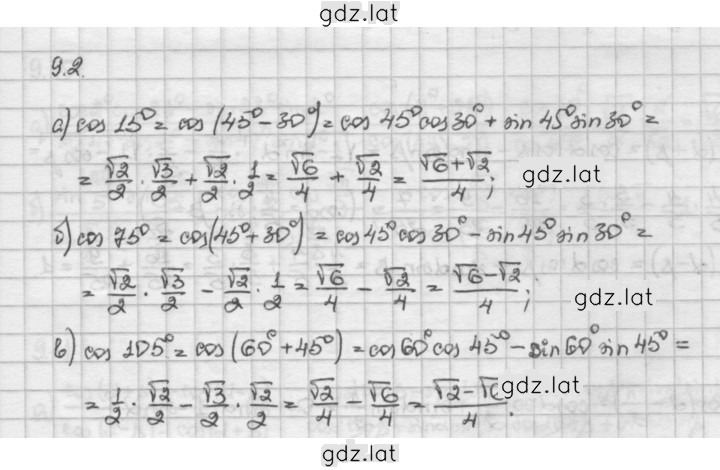 gdz.lat
9.2.
а) cos 15° = cos (45° - 30°) = cos 45° cos 30° + sin 45° sin 30° =
= √2/2 · √3/2 + √2/2 · 1/2 = √6/4 + √2/4 = (√6+√2)/4; gdz.lat
б) cos 75° = cos (45° + 30°) = cos 45° cos 30° - sin 45° sin 30° =
= √2/2 · √3/2 - √2/2 · 1/2 = √6/4 - √2/4 = (√6-√2)/4; gdz.lat
в) cos 105° = cos (60° + 45°) = cos 60° cos 45° - sin 60° sin 45° =
= 1/2 · √2/2 - √3/2 · √2/2 = √2/4 - √6/4 = (√2-√6)/4. gdz.lat
gdz.lat